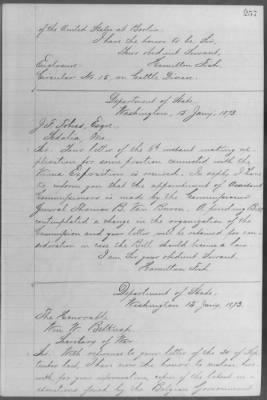 257
of the United States at Berlin.
I have the honor to be, Sir,
Your obedient Servant,
Enclosure: Hamilton Fish.
Circular No. 15, on Cattle Disease.
Department of State,
Washington, 15 Jany. 1873.
Esqre.
Sedalia, Mo.
Sir: Your letter of the 6th instant making ap-
plication for some position connected with the
Vienna Exposition is received. In reply I have
to inform you that the appointment of Assistant
Commissioners is made by the Commissioner
General Thomas B. Van Buren. A pending Bill
contemplated a change in the organization of the
Commission and your letter will be retained for con-
sideration in case the Bill should become a law.
I am Sir your obedient Servant,
Hamilton Fish
Department of State,
Washington 15 Jany. 1873.
The Honorable
Wm. W. Belknap,
Secretary of War.
Sir: With reference to your letter of the 20 of Sep-
tember last, I have now the honor to enclose here-
with for your information, copies of the latest in-
structions issued by the Belgian Government